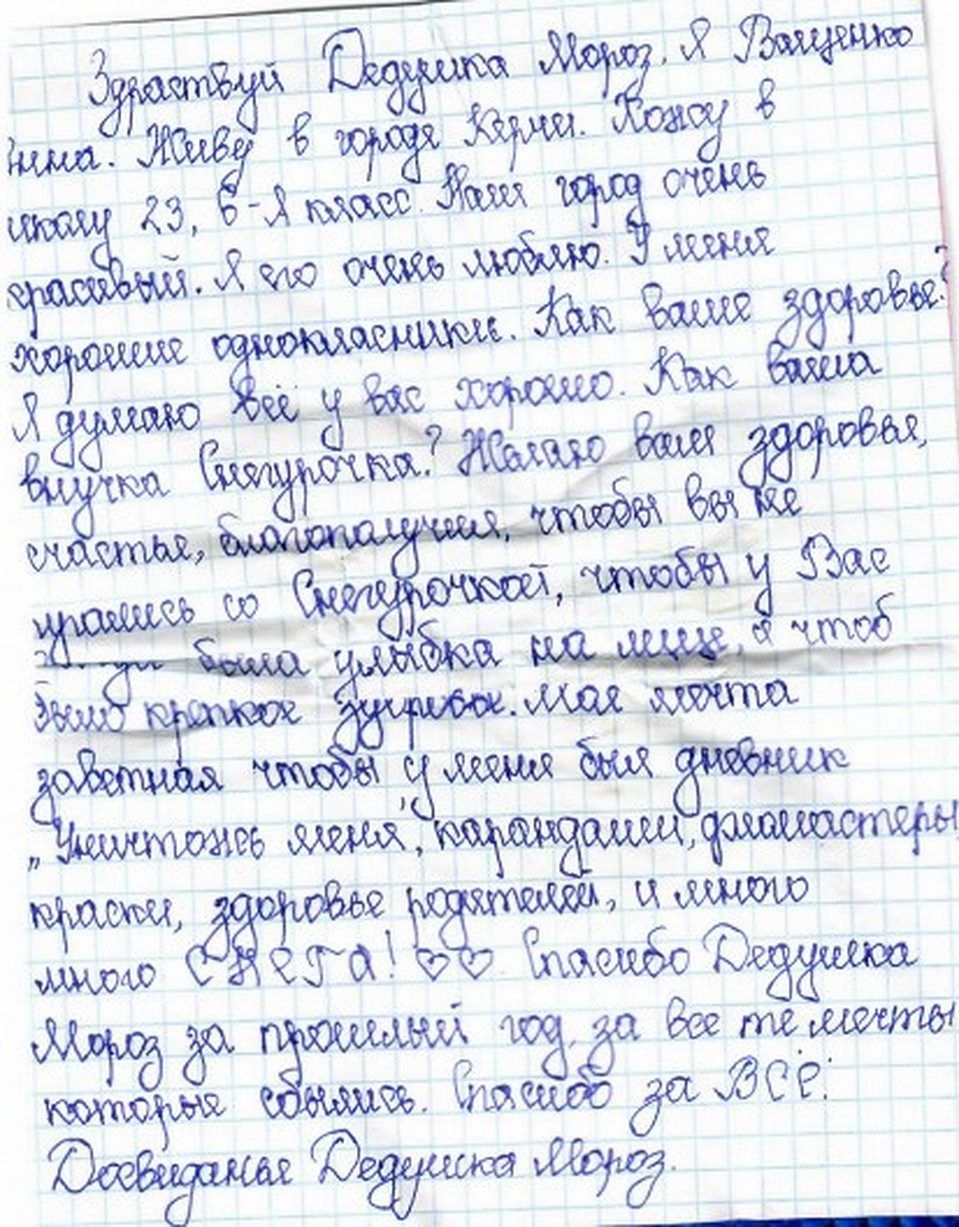 Здраствуй Дедушка Мороз. Я Ващенко
Живу в городе Керчи. Хожу в
школу 23, 6-Я класс. Наш город очень
красивый. Я его очень люблю. У меня
хорошие однокласники. Как ваше здоровье?
Я думаю всё у вас хорошо. Как ваша
внучка Снегурочка? Желаю вам здоровья,
счастья, благополучия, чтобы вы не
со Снегурочкой, чтобы у Вас
была улыбка на лице, а чтоб
было крепкое Мая мечта
заветная чтобы у меня был дневник
„Уничтожь меня", карандаши, фломастеры,
краски, здоровье родятелей, и много
много СНЕГА! ♡♡ Спасибо Дедушка
Мороз за прошлый год, за все те мечты
которые сбылись. Спасибо за ВСЁ!
Досвиданья Дедушка Мороз.